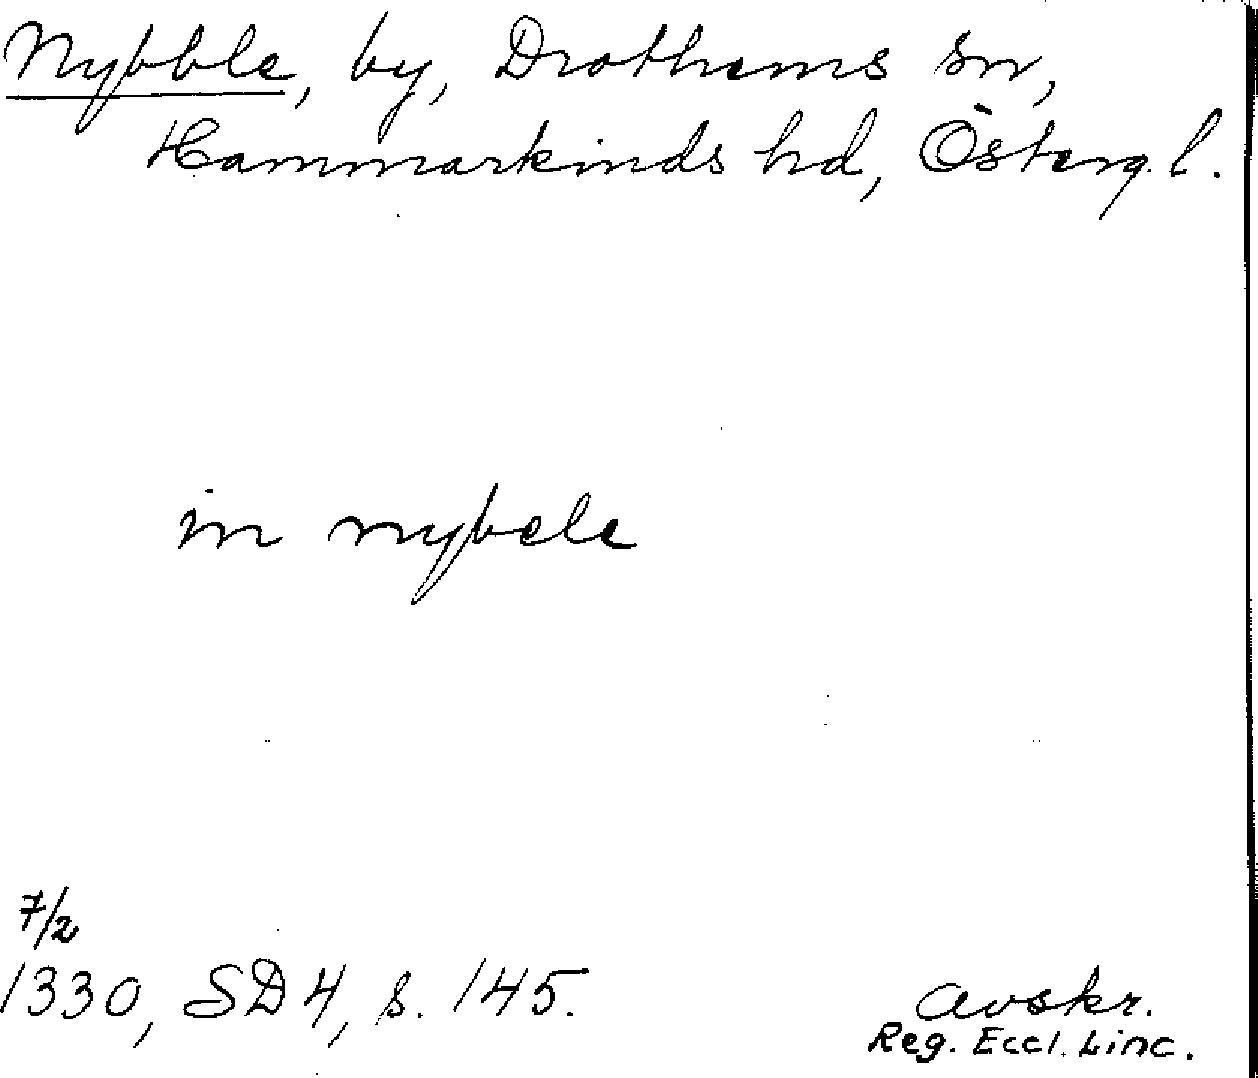 Nybble, by, Drothems sn,
Hammarkinds hd, Österg. l.
in nybele
7/2
1330, SD 4, s. 145.
avskr.
Reg. Eccl. Linc.